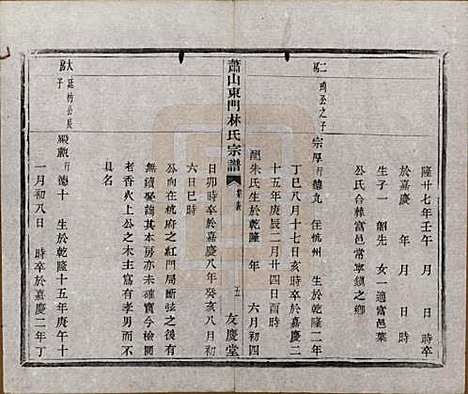 隆廿七年壬午 月 日 時卒
於嘉慶 年 月 日 時
生子一 韶先 女一適富邑葉
公氏合葬富邑常寧鎮之鄉
二房 鳴丞之子 宗厚 行德九 住杭州 生於乾隆二年
丁巳八月十七日亥時卒於嘉慶二
十五年庚辰二月廿四日酉時
配朱氏生於乾隆 年 六月初四
蕭山東門林氏宗譜 五 友慶堂
日卯時卒於嘉慶八年癸亥八月初
六日巳時
公向在杭府之紅門局斷弦之後有
無續娶稽其本房亦未確實今檢閱
老香火上公之木主富有孝男而未
具名
大房 廷枋公長子 殿觀 行德十 生於乾隆十五年庚午十
一月初八日 時卒於嘉慶二年丁